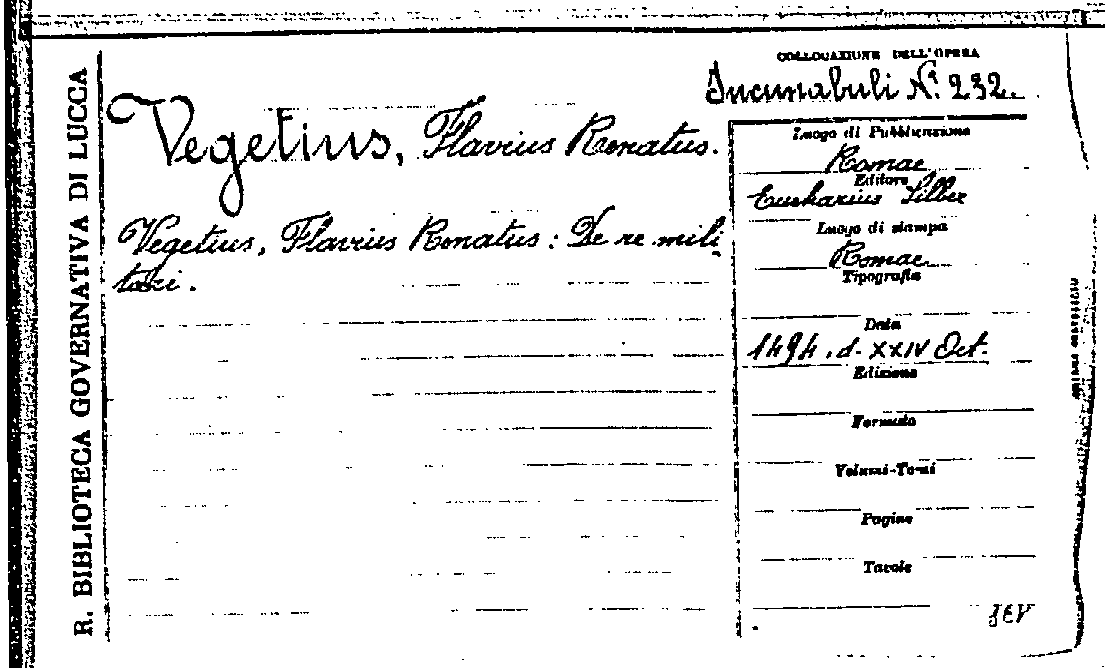 R. BIBLIOTECA GOVERNATIVA DI LUCCA
COLLOCAZIONE DELL'OPERA
Incunabuli N.i 232.
Vegetius, Flavius Renatus.
Vegetius, Flavius Renatus: De re mili
tari.
Luogo di Pubblicazione
Romae
Editore
Eucharius Silber
Luogo di stampa
Romae
Tipografia
Data
1494. d. XXIV Oct.
Edizione
Formato
Volumi-Tomi
Pagine
Tavole